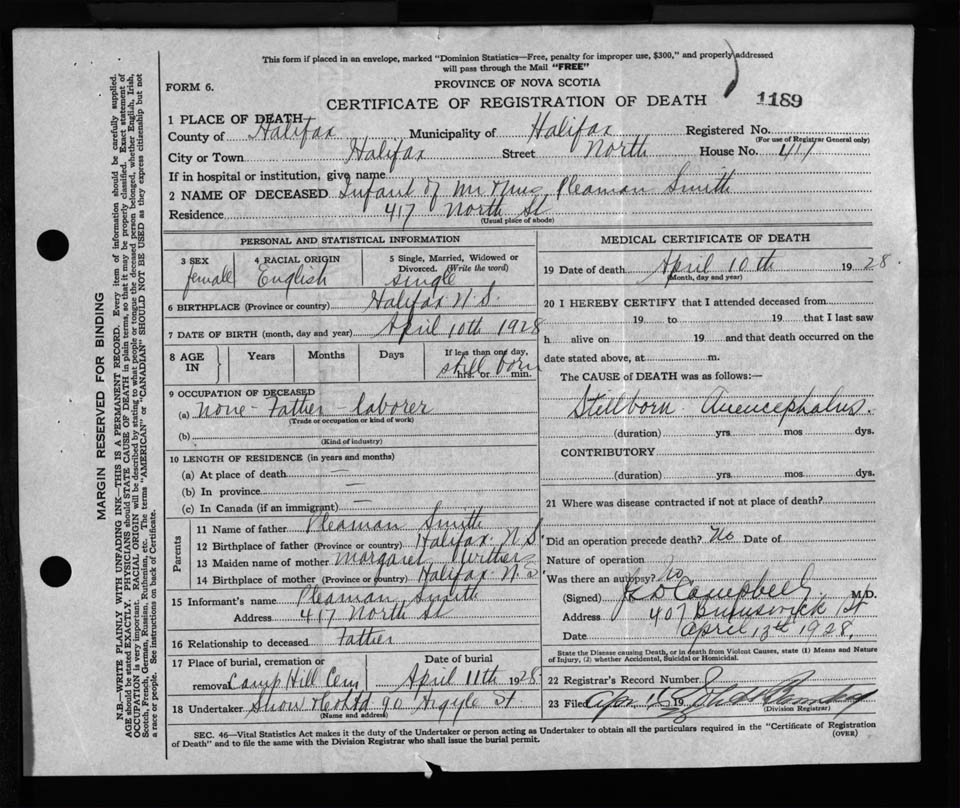 This form if placed in an envelope, marked "Dominion Statistics—Free, penalty for improper use, $300," and properly addressed
will pass through the Mail "FREE"
FORM 6.
PROVINCE OF NOVA SCOTIA
CERTIFICATE OF REGISTRATION OF DEATH
1189
1 PLACE OF DEATH
County of Halifax Municipality of Halifax Registered No.
(For use of Registrar General only)
City or Town Halifax Street North House No. 417
If in hospital or institution, give name
2 NAME OF DECEASED Infant of Mr & Mrs Pleaman Smith
Residence 417 North St
(Usual place of abode)
PERSONAL AND STATISTICAL INFORMATION
3 SEX female
4 RACIAL ORIGIN English
5 Single, Married, Widowed or Divorced. (Write the word) single
6 BIRTHPLACE (Province or country) Halifax N.S.
7 DATE OF BIRTH (month, day and year) April 10th 1928
8 AGE IN Years Months Days If less than one day, hrs. or min. still born
9 OCCUPATION OF DECEASED
(a) none - Father - laborer
(Trade or occupation or kind of work)
(b)
(Kind of industry)
10 LENGTH OF RESIDENCE (in years and months)
(a) At place of death —
(b) In province —
(c) In Canada (if an immigrant) —
Parents
11 Name of father Pleaman Smith
12 Birthplace of father (Province or country) Halifax N.S.
13 Maiden name of mother Margaret
14 Birthplace of mother (Province or country) Halifax N.S.
15 Informant's name Pleaman Smith
Address 417 North St
16 Relationship to deceased Father
17 Place of burial, cremation or removal Camp Hill Cem
Date of burial April 11th 1928
18 Undertaker Snow & Co Ltd 90 Argyle St
(Name and address)
MEDICAL CERTIFICATE OF DEATH
19 Date of death April 10th 1928.
(Month, day and year)
20 I HEREBY CERTIFY that I attended deceased from
19 to 19 that I last saw
h alive on 19 and that death occurred on the
date stated above, at m.
The CAUSE of DEATH was as follows:—
Stillborn Anencephalus.
(duration) yrs mos dys.
CONTRIBUTORY
(duration) yrs mos dys.
21 Where was disease contracted if not at place of death?
Did an operation precede death? No Date of
Nature of operation
Was there an autopsy? No
(Signed) Campbell M.D.
Address 407 Brunswick St
Date April 13th 1928.
State the Disease causing Death, or in death from Violent Causes, state (1) Means and Nature
of Injury, (2) whether Accidental, Suicidal or Homicidal.
22 Registrar's Record Number
23 Filed 19
(Division Registrar)
SEC. 46—Vital Statistics Act makes it the duty of the Undertaker or person acting as Undertaker to obtain all the particulars required in the "Certificate of Registration
of Death" and to file the same with the Division Registrar who shall issue the burial permit.
(OVER)
MARGIN RESERVED FOR BINDING
N.B.—WRITE PLAINLY WITH UNFADING INK—THIS IS A PERMANENT RECORD. Every item of information should be carefully supplied.
AGE should be stated EXACTLY. PHYSICIANS should STATE CAUSE OF DEATH in plain terms, so that it may be properly classified. Exact statement of
OCCUPATION is very important. RACIAL ORIGIN will be described by stating to what people or tongue the deceased person belonged, whether English, Irish,
Scotch, French, German, Russian, Ruthenian, etc. The terms "AMERICAN" or "CANADIAN" SHOULD NOT BE USED as they express citizenship but not
a race or people. See instructions on back of Certificate.